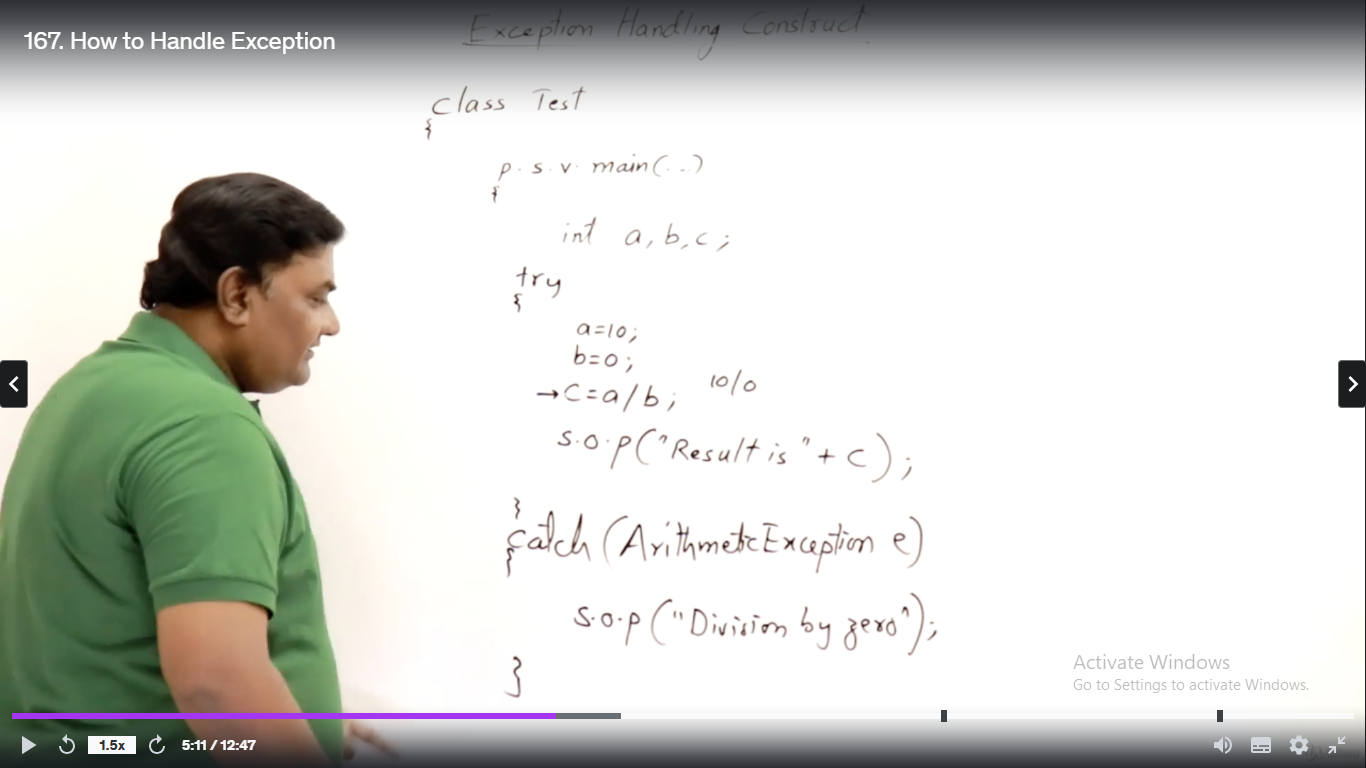 Exception Handling Construct
167. How to Handle Exception
class Test
{
p.s.v. main(...)
{
int a, b, c;
try
{
a=10;
b=0;
→c=a/b; 10/0
s.o.p("Result is" + c);
}
catch (ArithmeticException e)
{
s.o.p("Division by zero");
}
Activate Windows
Go to Settings to activate Windows.
1.5x 5:11 / 12:47